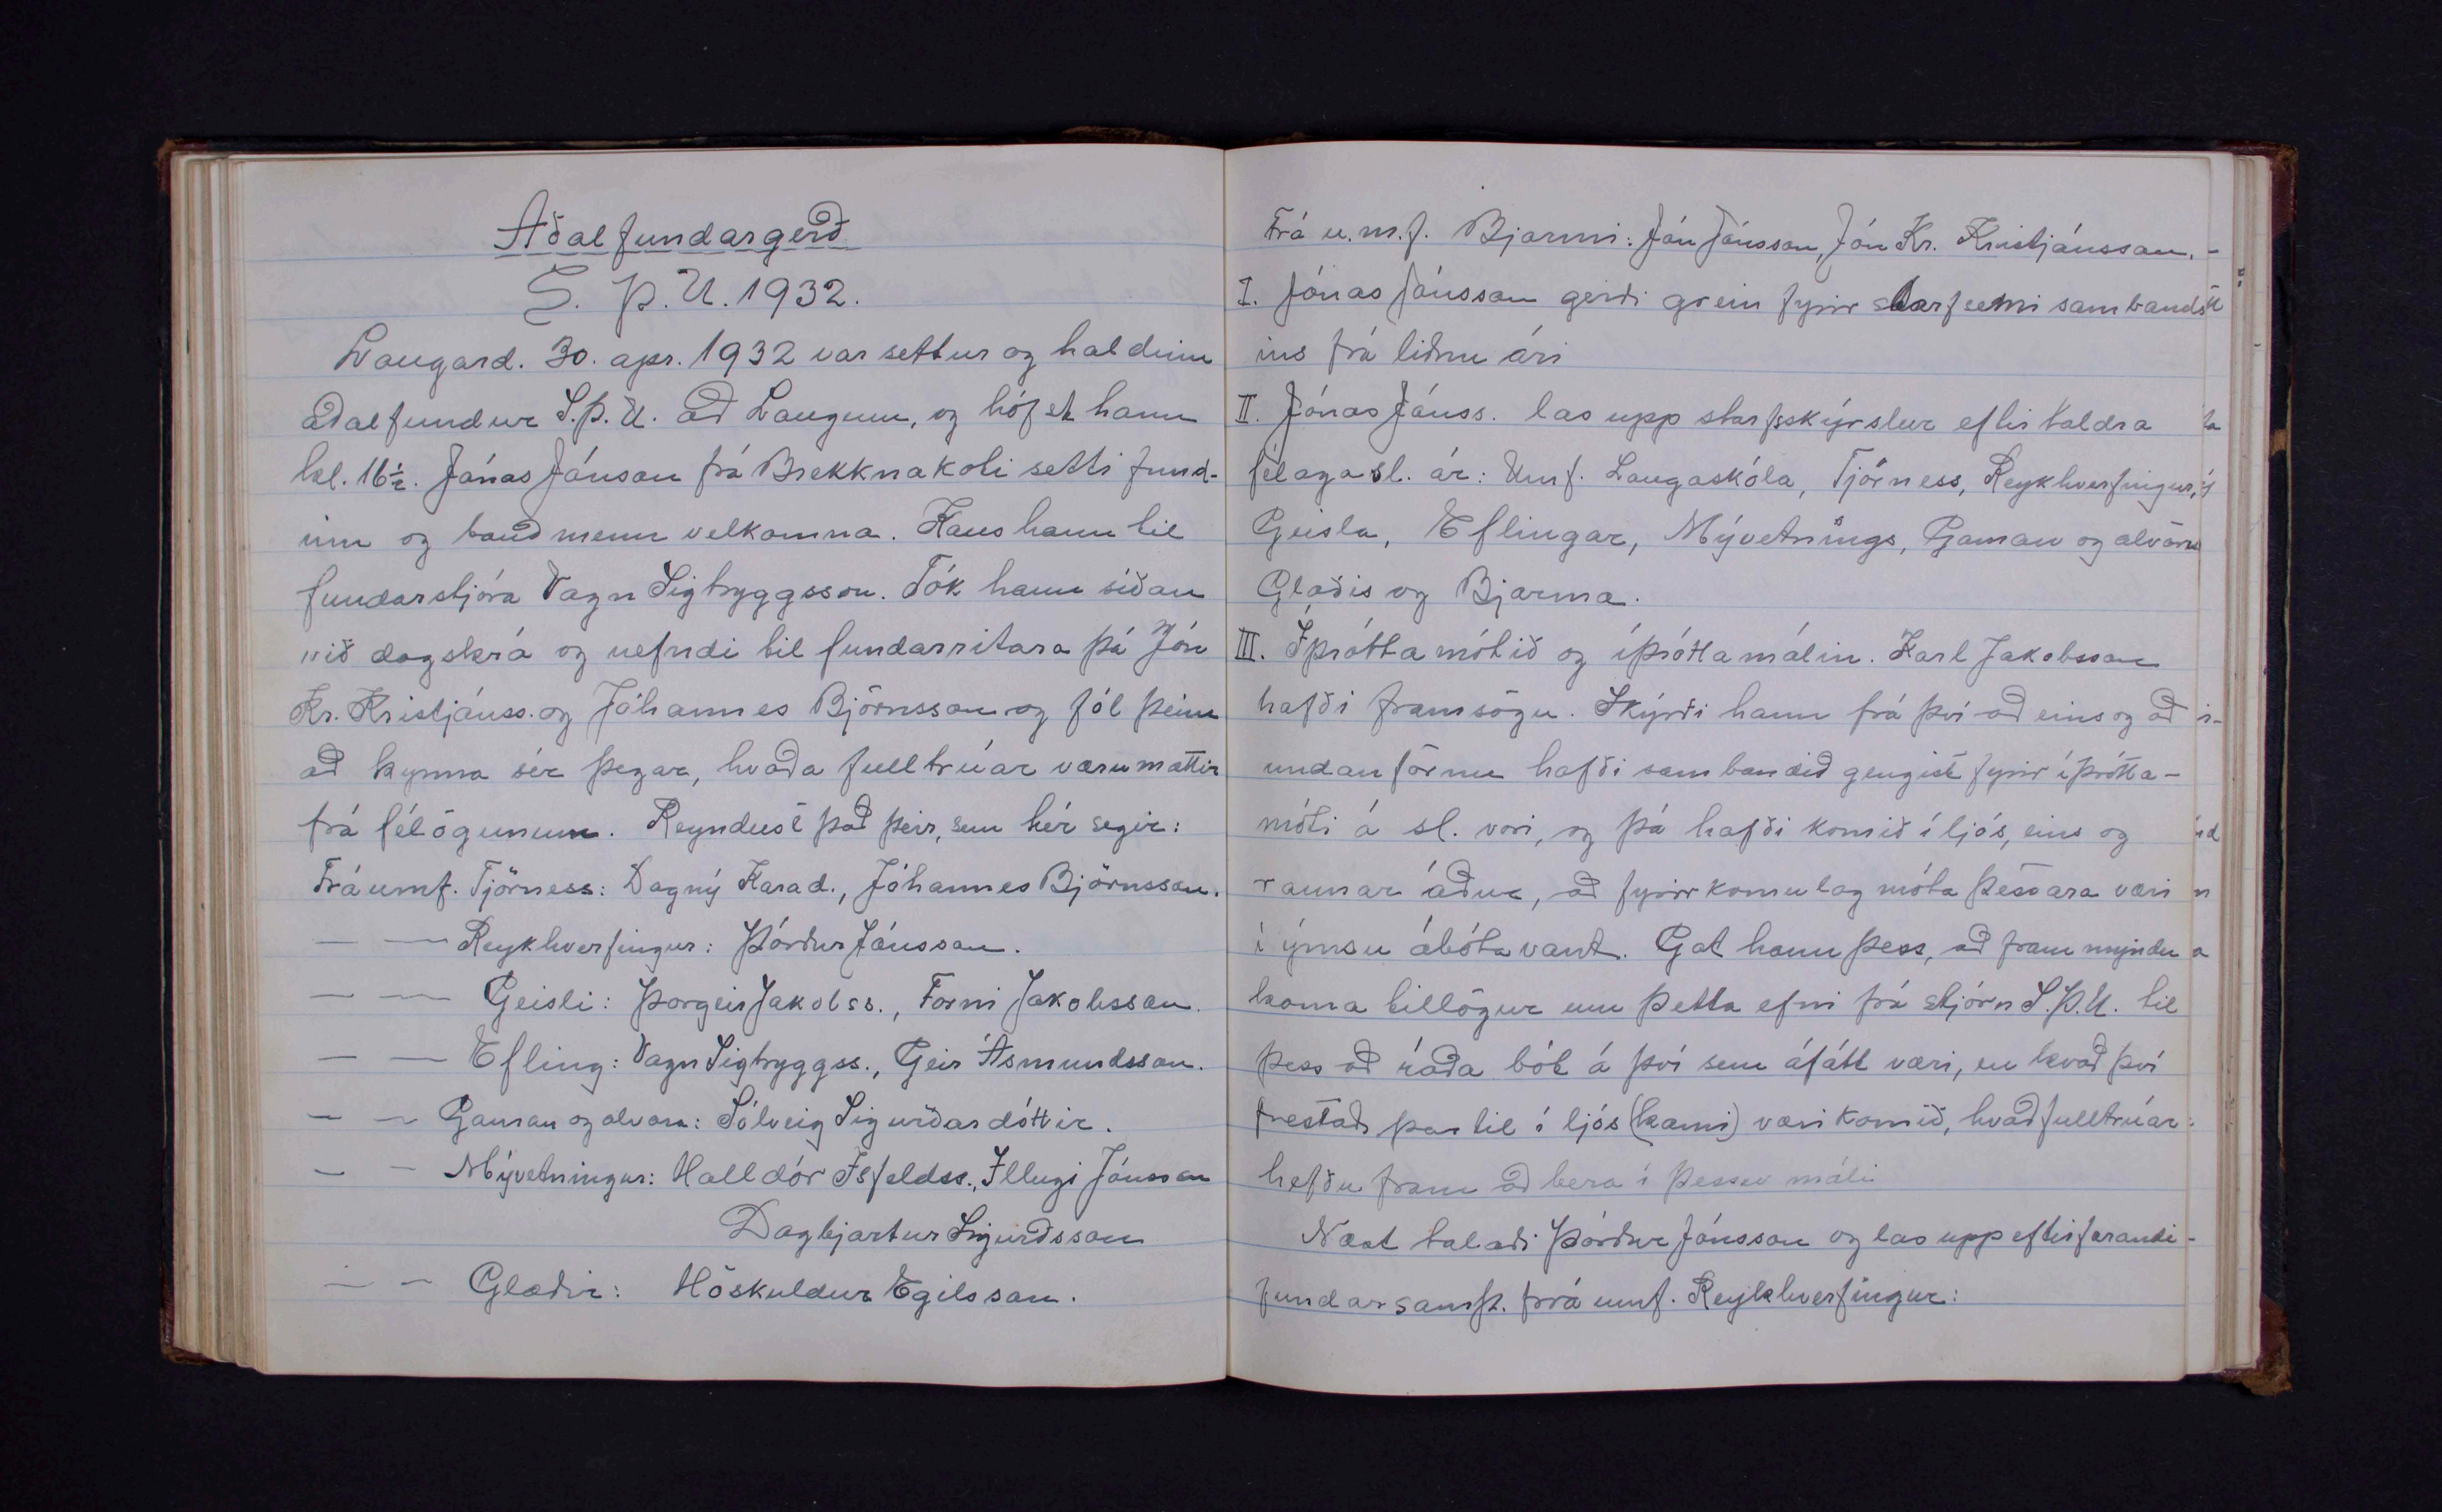 Aðalfundargerð
S. Þ. U. 1932.
Laugard. 30. apr. 1932 var settur og haldinn
aðalfundur S.Þ.U. að Laugum, og hófst hann
kl. 16½. Jónas Jónsson frá Brekknakoti setti fund-
inn og bauð menn velkomna. Kaus hann til
fundarstjóra Vagn Sigtryggsson. Tók hann síðan
við dagskrá og nefndi til fundarritara þá Jón
Kr. Kristjánss. og Jóhannes Björnsson og fól þeim
að kynna sér þegar, hvaða fulltrúar væru mættir
frá félögunum. Reyndust það þeir, sem hér segir:
Frá umf. Tjörness: Dagný Karad., Jóhannes Björnsson.
— — Reykhverfingur: Þórður Jónsson.
— — Geisli: Þorgeir Jakobss., Forni Jakobsson.
— — Efling: Vagn Sigtryggss., Geir Ásmundsson.
— — Gaman og alvara: Sólveig Sigurðardóttir.
— — Mývetningur: Halldór Ísfeldss., Illugi Jónsson
Dagbjartur Sigurðsson
— — Glæðir: Höskuldur Egilsson.
Frá u.m.f. Bjarmi: Jón Jónsson, Jón Kr. Kristjánsson. -
I. Jónas Jónsson gerði grein fyrir starfsemi sambands
ins frá liðnu ári
II. Jónas Jónss. las upp starfsskýrslur eftirtaldra
félaga sl. ár: Umf. Laugaskóla, Tjörness, Reykhverfingur,
Geisla, Eflingar, Mývetnings, Gaman og alvöru
Glæðis og Bjarma.
III. Íþróttamótið og íþróttamálin. Karl Jakobsson
hafði framsögu. Skýrði hann frá því að eins og að
undanförnu hafði sambandið gengist fyrir íþrótta-
móti á sl. vori, og þá hafði komið í ljós, eins og
raunar áður, að fyrirkomulag móta þessara væri
í ýmsu ábótavant. Gat hann þess, að fram myndu
koma tillögur um þetta efni frá stjórn S.Þ.U. til
þess að ráða bót á því sem áfátt væri, en kvað því
frestað þar til í ljós (kæmi) væri komið, hvað fulltrúar
hefðu fram að bera í þessu máli
Næst talaði Þórður Jónsson og las upp eftirfarandi
fundarsamþ. frá umf. Reykhverfingur: